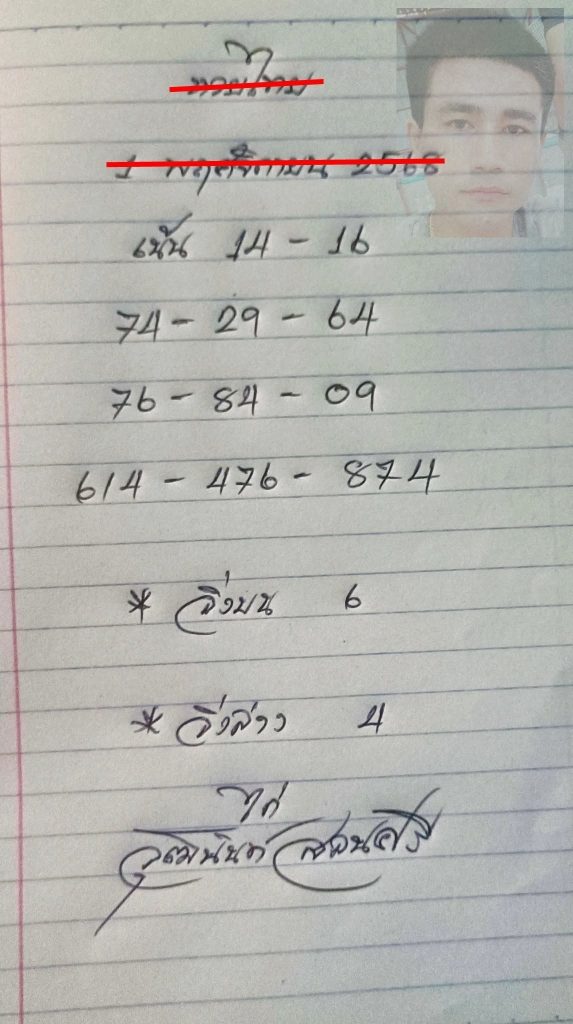 หวยไทย
1 พฤศจิกายน 2568
เน้น 14 - 16
74 - 29 - 64
76 - 84 - 09
614 - 476 - 874
* วิ่งบน 6
* วิ่งล่าง 4
ไก่
วุฒินันท์ สอนศรี